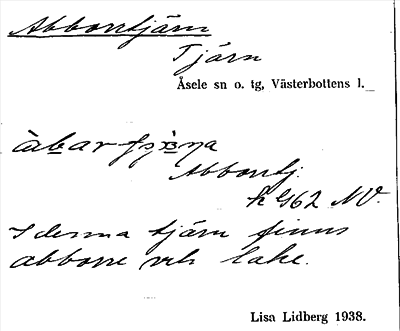 Abborrtjärn
Tjärn
Åsele sn o. tg, Västerbottens l.
Abborrtj.
k 962 NV.
I denna tjärn finns
abborre och lake.
Lisa Lidberg 1938.